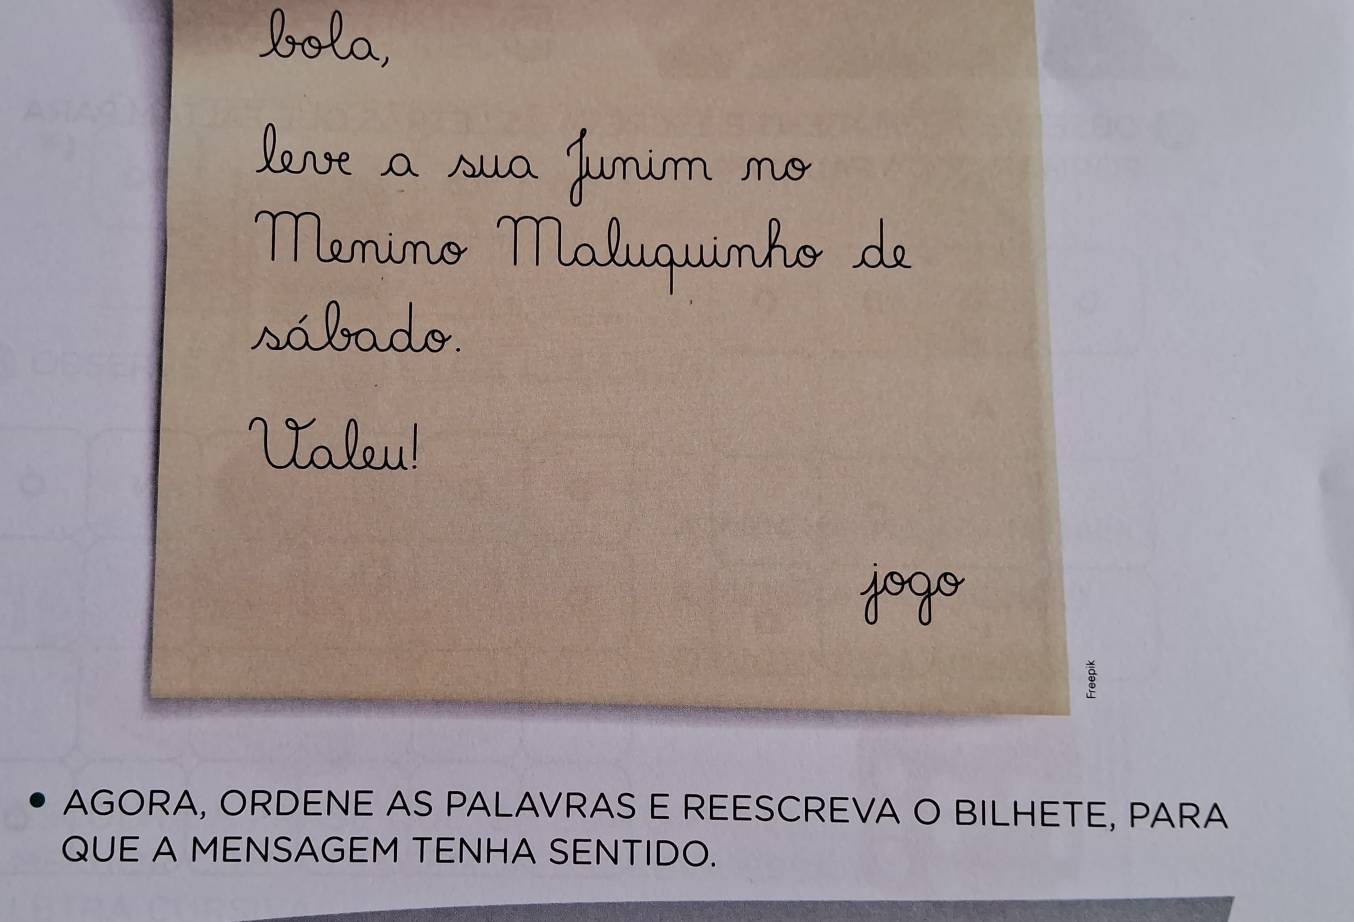 bola,
leve a sua Junim no
Menino Maluquinho de
sábado.
Valeu!
jogo
Freepik
• AGORA, ORDENE AS PALAVRAS E REESCREVA O BILHETE, PARA
QUE A MENSAGEM TENHA SENTIDO.